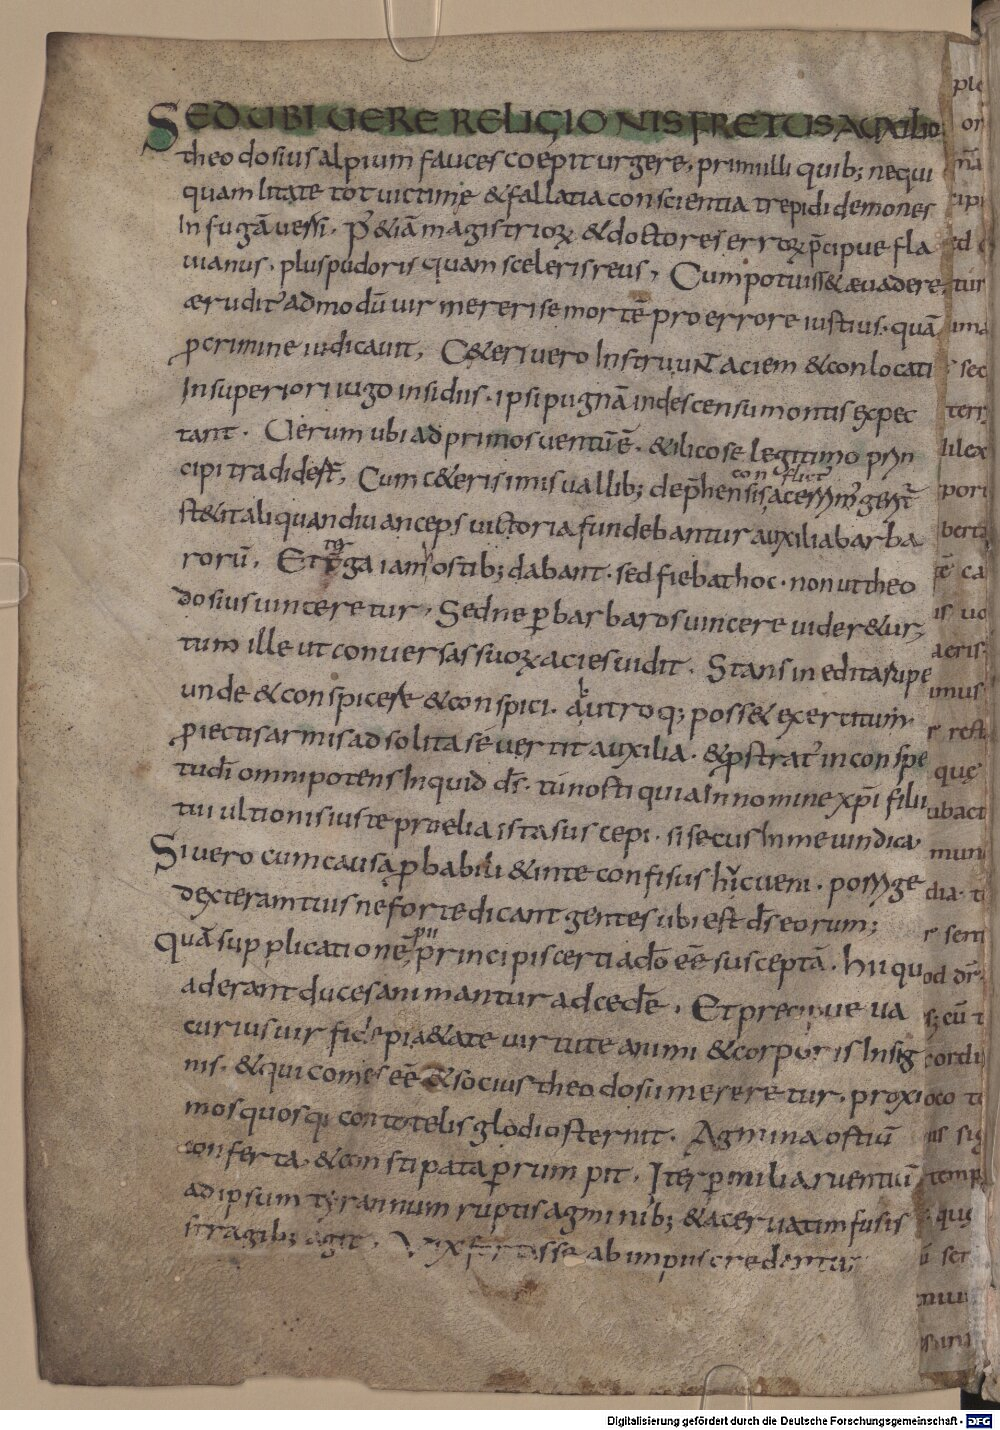 SED UBI UERE RELIGIONIS FRETUS AUXILIO
theodosius alpium fauces coepit urgere, primi illi quib; nequi
quam litate tot uictime & fallatia conscientia trepidi demones
In fugā uersi. P̄ & iā magistri eoꝝ & doctores erroꝝ p̄cipue fla
uianus. plus pudoris quam sceleris reus, Cum potuiss& æuadere
ærudit' admodū uir mereri se mortē pro errore iustius. quā
ꝑ crimine iudicauit, C&eri uero Instruunt aciem & conlocati
In superiori iugo insidiis. ipsi pugnā indescensu montis expec
tant. Uerum ubi ad primos uentū ē. & ilico se legitimo prin
cipi tradider̄, Cum c&eris imis uallib; dep̄hensis acerrim' gerit̄
conflict'
st&it aliquandiu anceps uictoria fundebantur auxilia barba
rorū. Et terga iam hostib; dabant. sed fiebat hoc. non ut theo
dosius uinceretur. Sed ne ꝑ barbaros uincere uider&ur,
tum ille ut conuersas suoꝝ acies uidit. Stans in edita rupe
unde & conspicere & conspici. ab utroq; poss& exercitum
ꝓiectis armis ad solita se uertit auxilia. & ꝓstrat' in conspe
tu dī omnipotens Inquid d̄s. tu nosti quia In nomine xp̄i filii
tui ultionis iuste proelia ista suscepi. si secus In me uindica
Si uero cum causa ꝓbabili & inte confisus huc ueni. porrige
dexteram tuis ne forte dicant gentes ubi est d̄s eorum;
Quā supplicationē pii principis certi a dō eē susceptā. hii qu
aderant duces animantur ad cedē. Et precipue ua
curius uir fide pia&ate uirtute animi & corporis Insig
nis. & qui comes eē & socius theodosii mereretur. proxi
mos quosq; conto telis gladio sternit. Agmina ostiū
conferta & constipata ꝑrumpit. Iter ꝑ milia ruentiū
ad ipsum tyrannum ruptis agminib; & aceruatim fusis
stragib; agit. Vix fortasse ab impiis credantur
Digitalisierung gefördert durch die Deutsche Forschungsgemeinschaft - DFG